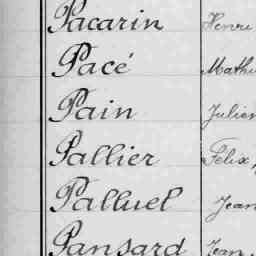 Pacarin Henri
Pacé Mathu
Pain Julien
Pallier Félix
Palluel Jean
Pansard Jean